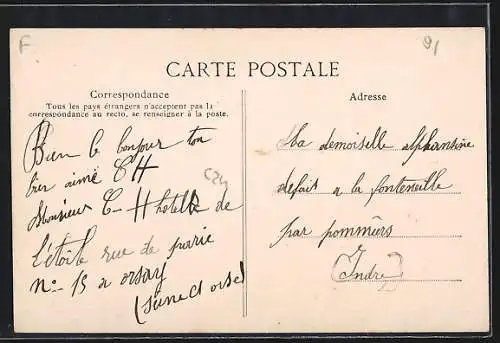 F
91
CARTE POSTALE
Correspondance
Tous les pays étrangers n'acceptent pas la
correspondance au recto, se renseigner à la poste.
Bien le bonjour ton
bien aimé CH
Monsieur C-H hotel de
l'étoile rue de parie
n°- 15 a orsay
(seine et orse)
Adresse
Ma demoiselle alphansine
defait a la fonteneille
par pommiers
(Indre)